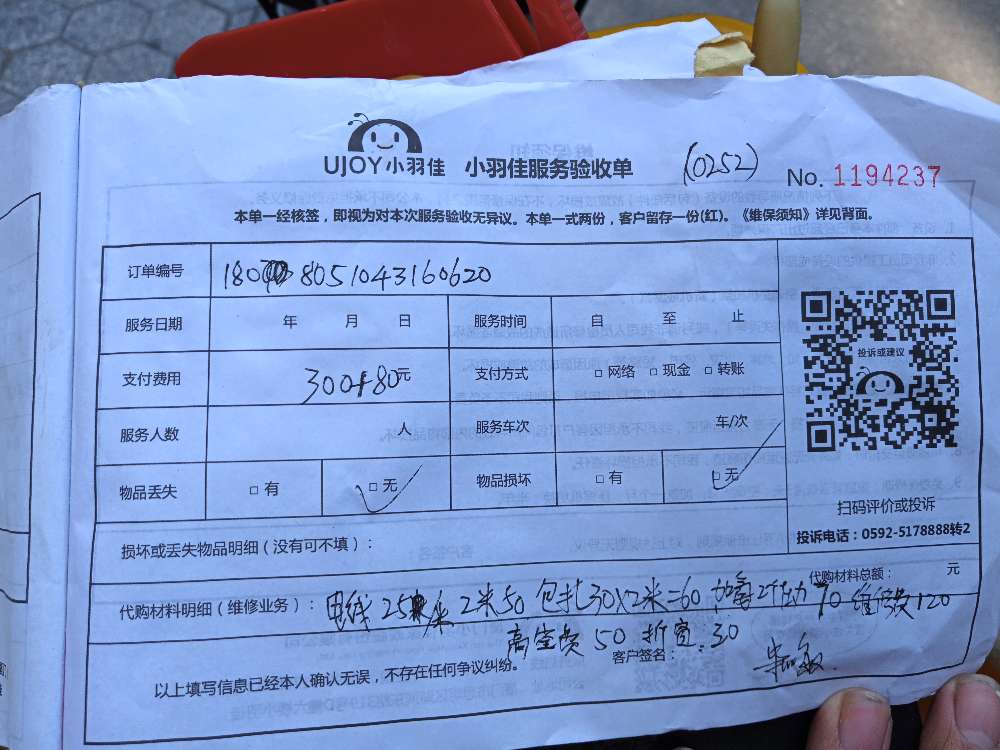 UJOY小羽佳 小羽佳服务验收单 (0252) No. 1194237
本单一经核签，即视为对本次服务验收无异议。本单一式两份，客户留存一份(红)。《维保须知》详见背面。
订单编号 180 8051043160620
服务日期 年 月 日 服务时间 自 至 止
支付费用 300+80元 支付方式 □网络 □现金 □转账
服务人数 人 服务车次 车/次
物品丢失 □有 □无 物品损坏 □有 □无
投诉或建议
扫码评价或投诉
投诉电话：0592-5178888转2
损坏或丢失物品明细（没有可不填）：
代购材料总额： 元
代购材料明细（维修业务）： 电线25米 2米50 包扎30X2米=60 加 2个 70 维修费120
高空费50 折宽:30
客户签名：
以上填写信息已经本人确认无误，不存在任何争议纠纷。